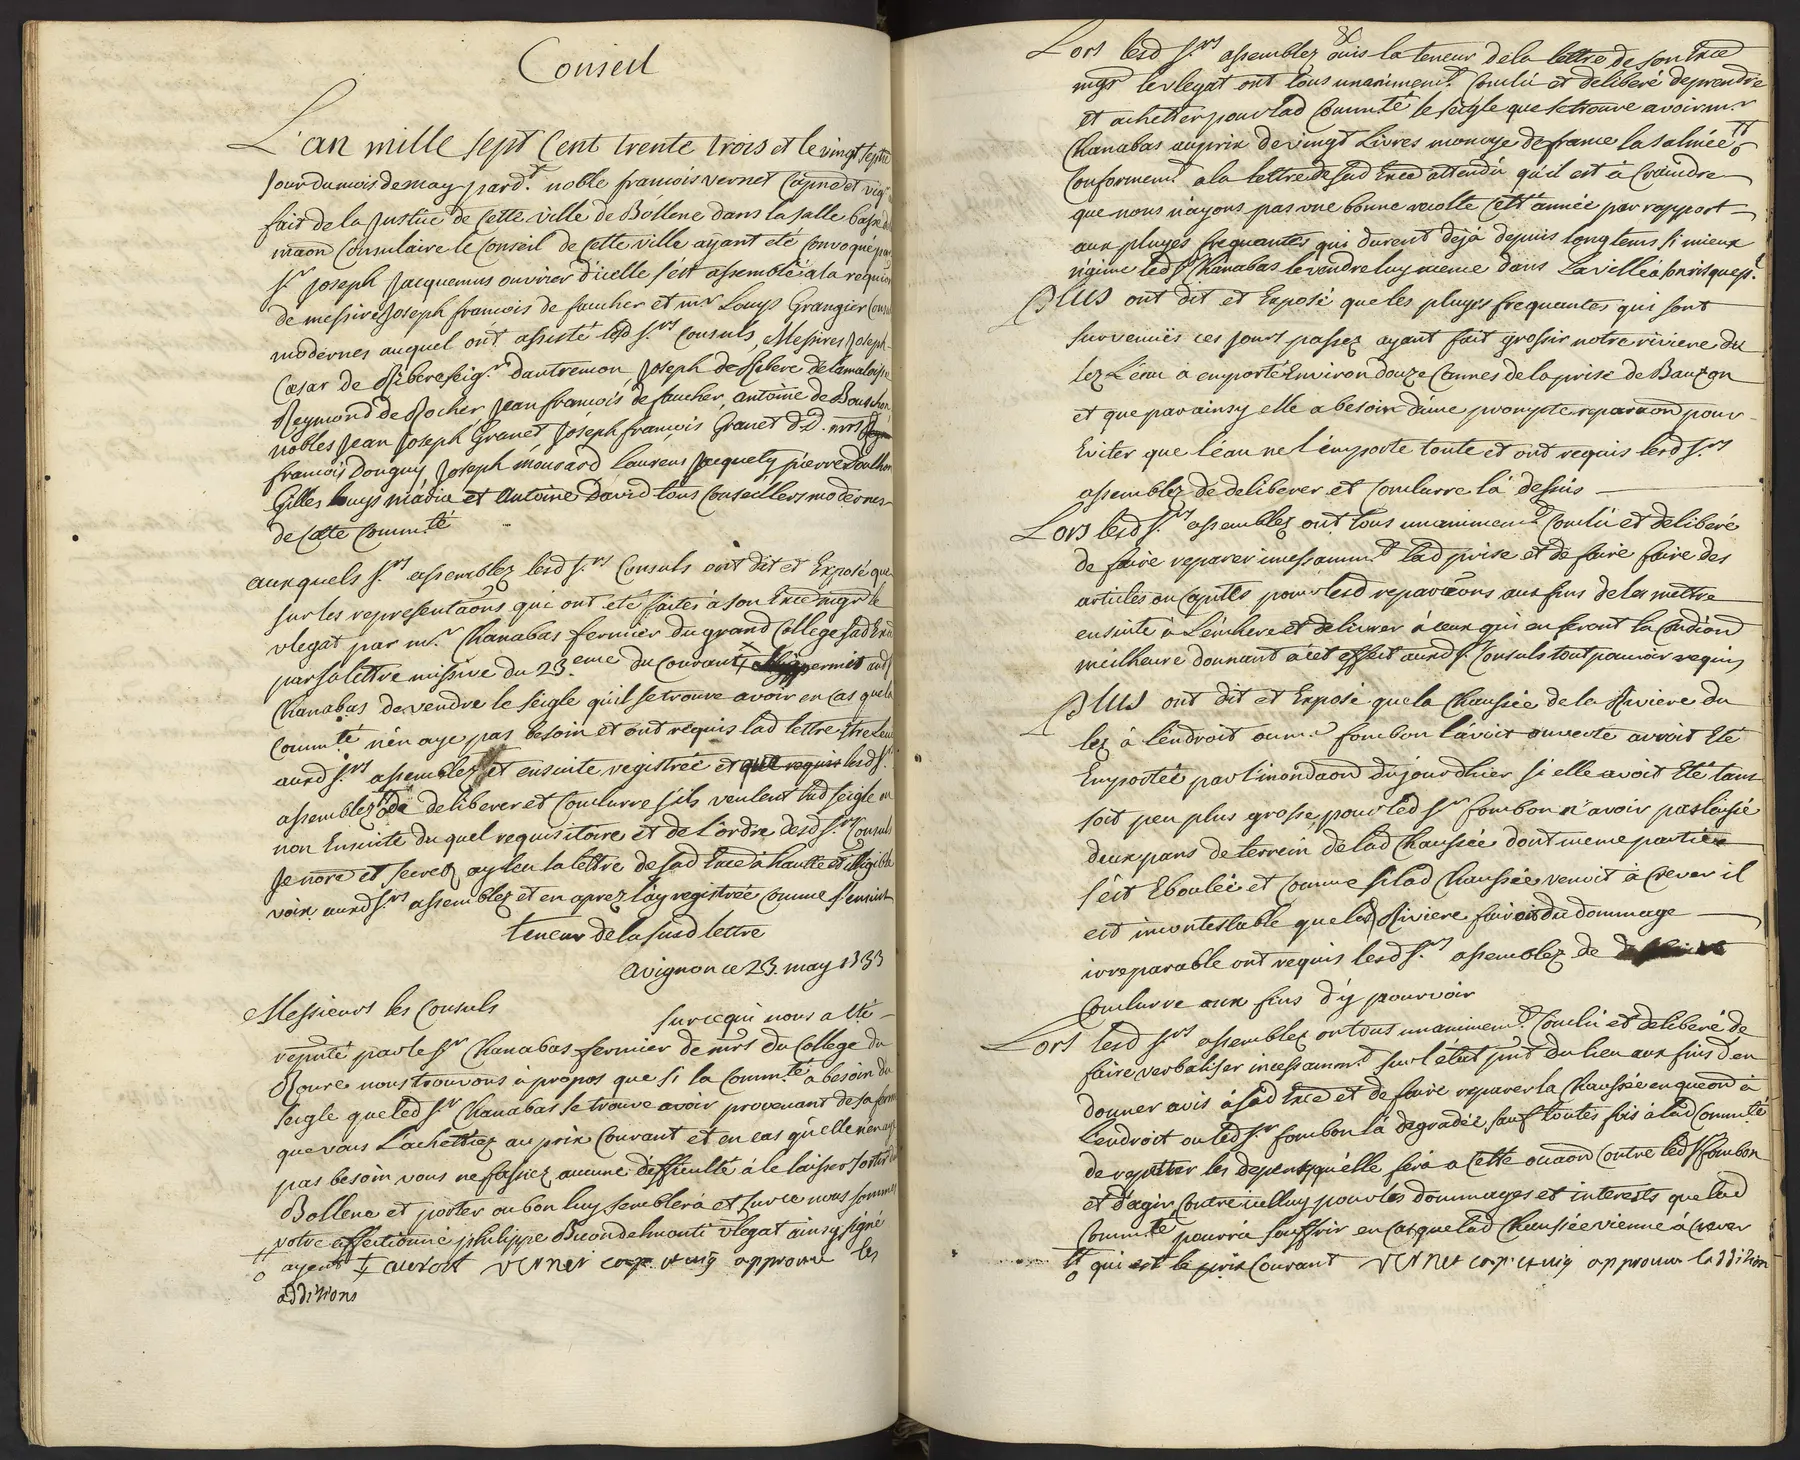 Conseil
L'an mille sept Cent trente trois et le vingt septie
Jour du mois de may pard.t noble francois vernet Capne et vig.r
fait de la Justice de Cette ville de Bollene dans la salle basse
maon Consulaire le Conseil de Cette ville ayant eté Convoqué par
s.r Joseph Jacquemus ouvrier d'icelle s'est assemblé a la requi
de messire Joseph francois de faucher et m.r Louys Grangier Consul
modernes auquel ont assisté lesd s.rs Consuls, Messires Joseph
Cæsar de Ribere seig.r dautremon, Joseph de Ribere de
Reymond de Rocher, Jean francois de faucher, antoine de
nobles Jean Joseph Granet, Joseph francois Granet d.D. mrs
francois Donguy Joseph mousard Laurens Jacquety pierre
Gilles Louys madia et Antoine David tous Conseillers modernes
de Cette Commté
auxquels s.rs assemblez lesd s.rs Consuls ont dit et Exposé que
sur les representaõns qui ont eté faites a son Exce mgr le
vlegat par m.r Chanabas fermier du grand College sad Exce
par sa lettre missive du 23.eme du Courant permit aud
Chanabas de vendre le seigle qu'il se trouve avoir en cas que la
Commté n'en aye pas besoin et ont requis lad lettre etre leue
auxd s.rs assemblez et ensuite registrée et que requis lesd s.rs
assemblez de deliberer et Conclurre s'ils veulent lad seigle ou
non Ensuite du quel requisitoire et de l'ordre desd s.rs Consuls
Je nore et secretz ay leu la lettre de sad Exce à haute et illigible
voix auxd s.rs assemblez et en aprez l'ay registrée Comme s'ensuit
teneur de la susd lettre
avignon ce 23. may 1733
Messieurs les Consuls
sur ce qui nous a eté
reputé par le s.r Chanabas fermier de mrs du College du
Roure nous trouvons à propos que si la Commté a besoin du
seigle que led s.r Chanabas se trouve avoir provenant de sa ferme
que vous L'achettiez au prix Courant et en cas qu'elle n'en aye
pas besoin vous ne fassiez aucune difficulté à le laisser sortir de
Bollene et porter ou bon luy semblera et sur ce nous sommes
votre affectionné philippe Buondelmonti vlegat ainsy signé
ayent auroit vernet cap. et vig approuve les
additions
Lors lesd s.rs assemblez ouis la teneur de la lettre de son Exce
mgr le vlegat ont tous unanimem.t Conclu et deliberé de prendre
et achetter pour lad Commté le seigle que se trouve avoir m.r
Chanabas au prix de vingt Livres monoye de france la salmée
Conformem.t a la lettre de sad Exce attendu qu'il est à Craindre
que nous n'ayons pas une bonne recolte Cett année par rapport
aux pluyes frequantes qui durent déjà depuis longtems si mieux
n'aime led s.r Chanabas le vendre luy meme dans La ville à
Plus ont dit et Exposé que les pluyes frequantes qui sont
survenües ces jours passez ayant fait grossir notre riviere du
lez L'eau à emporté Environ douze Cannes de la prise de Bauzon
et que par ainsy elle a besoin d'une prompte reparaõn pour
Eviter que l'eau ne l'emporte toute et ont requis lesd s.rs
assemblez de deliberer et Conclurre là dessus
Lors lesd s.rs assemblez ont tous unanimem.t Conclu et deliberé
de faire reparer incessamm.t lad prise et de faire faire des
articles ou Capitls pour lesd reparaõns aux fins de les mettre
ensuite à L'enchere et delivrer à Ceux qui en feront la Condion
meilheure donnant à cet effet auxd s. Consuls tout pouvoir requis
Plus ont dit et Exposé que la Chaussée de la Riviere du
lez à L'endroit ou m.r fombon l'avoit ouverte avroit Eté
Emportée par l'inondaõn d'ujourdhier si elle avoit Eté tant
soit peu plus grosse pour led s.r fombon n'avoir pas laissé
deux pans de terrein de lad Chaussée dont meme partie
s'est Eboulée et Comme si lad Chaussée venoit à Crever il
est incontestable que led Riviere fairoit du dommage
irreparable ont requis lesd s.rs assemblez de
Conclurre aux fins d'y pourvoir
Lors lesd s.rs assemblez ont tous unanimem.t Conclu et deliberé de
faire verbaliser incessamm.t sur l'état pnt du lieu aux fins d'en
donner avis à sad Exce et de faire reparer la Chaussée en queon à
L'endroit ou led s.r fombon l'a degradée sauf toutes fois à lad Commté
de repetter les depens qu'elle fera a Cette ocaõn Contre led s. fombon
et d'agir Contre icelluy pour les dommages et interests que lad
Commté pourra souffrir en Cas que lad Chaussée vienne à Crever
qui est le prix Courant vernet cap. et vig approuve laddition